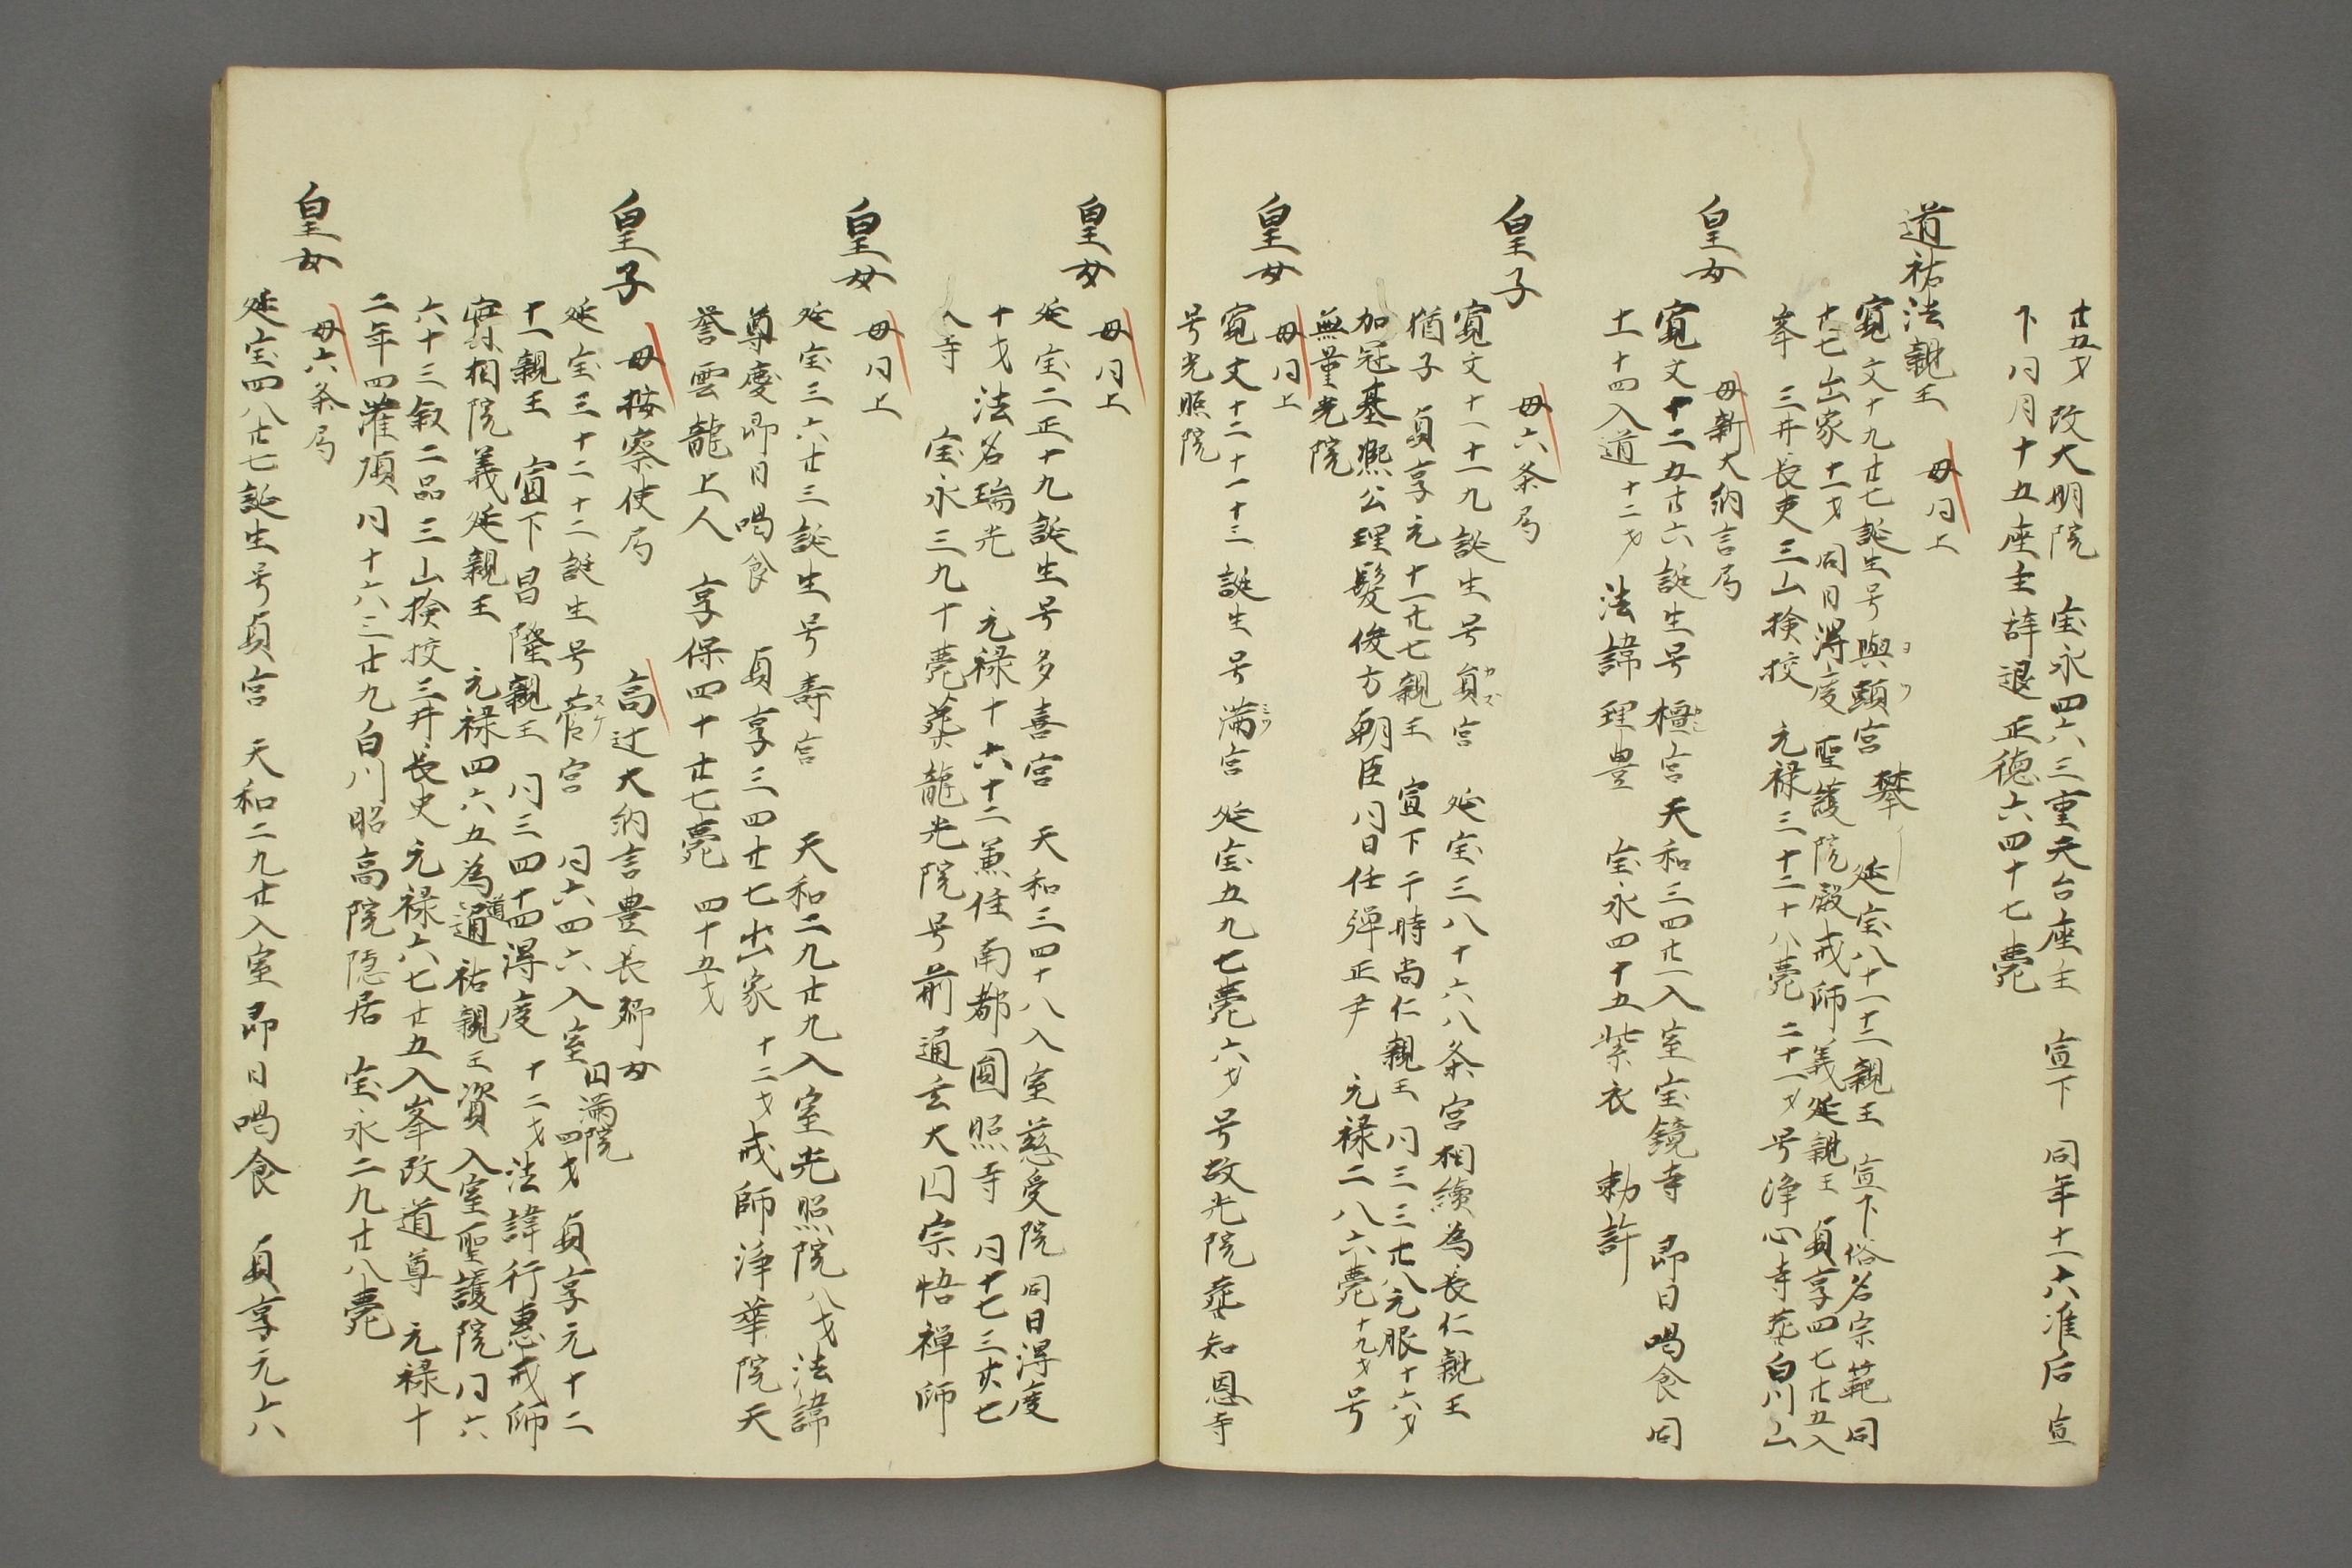 廿五才 改大明院 宝永四六三重天台座主 宣下 同年十一十六准后 宣
下 同月十五座主辞退 正徳六四十七薨
道祐法親王 母同上
寛文十九廿七誕生号與頭宮 攀 延宝八十一十二親王 宣下俗名宗範 同
廿七出家十一才 同日得度 聖護院殿戒師義延親王 貞享四七廿五入
峯 三井長吏三山検校 元禄三十二十八薨 二十一才号浄心寺葬白川山
皇女 母新大納言局
寛文十二五廿六誕生号檀宮 天和三四廿一入室宝鏡寺 即日喝食 同
十一十四入道十二才 法諱理豊 宝永四十五紫衣 勅許
皇子 母六条局
寛文十一十一九誕生号員宮 延宝三八十六八条宮相続為長仁親王
猶子 貞享元十一廿七親王 宣下于時尚仁親王 同三三廿八元服十六才
加冠基凞公理髮俊方朝臣同日任弾正尹 元禄二八六薨十九才号
無量光院
皇女 母同上
寛文十二十一十三誕生号満宮 延宝五九七薨六才号故光院葬知恩寺
号光照院
皇女 母同上
延宝二正十九誕生号多喜宮 天和三四十八入室慈受院 同日得度
十才法名瑞光 元禄十六十二兼住南都圓照寺 同十七三廿七
入寺 宝永三九十薨葬龍光院号前通玄大囙宗悟禅師
皇女 母同上
延宝三六廿三誕生号寿宮 天和二九廿九入室光照院八才法諱
尊慶即日喝食 貞享三四廿七出家十二才戒師浄華院天
誉雲龍上人 享保四十廿七薨 四十五才
皇子 母按察使局 高辻大納言豊長卿女
延宝三十二十二誕生号菅宮 同六四六入室円満院四才 貞享元十二
十一親王 宣下昌隆親王 同三四十四得度 十二才法諱行恵戒師
実相院義延親王 元禄四六五為道祐親王資入室聖護院同六
六十三叙二品三山検校三井長吏 元禄六七廿五入峯改道尊 元禄十
二年四灌頂 同十六三廿九白川昭高院隠居 宝永二九廿八薨
皇女 母六条局
延宝四八廿七誕生号貞宮 天和二九廿入室即日喝食 貞享元六八